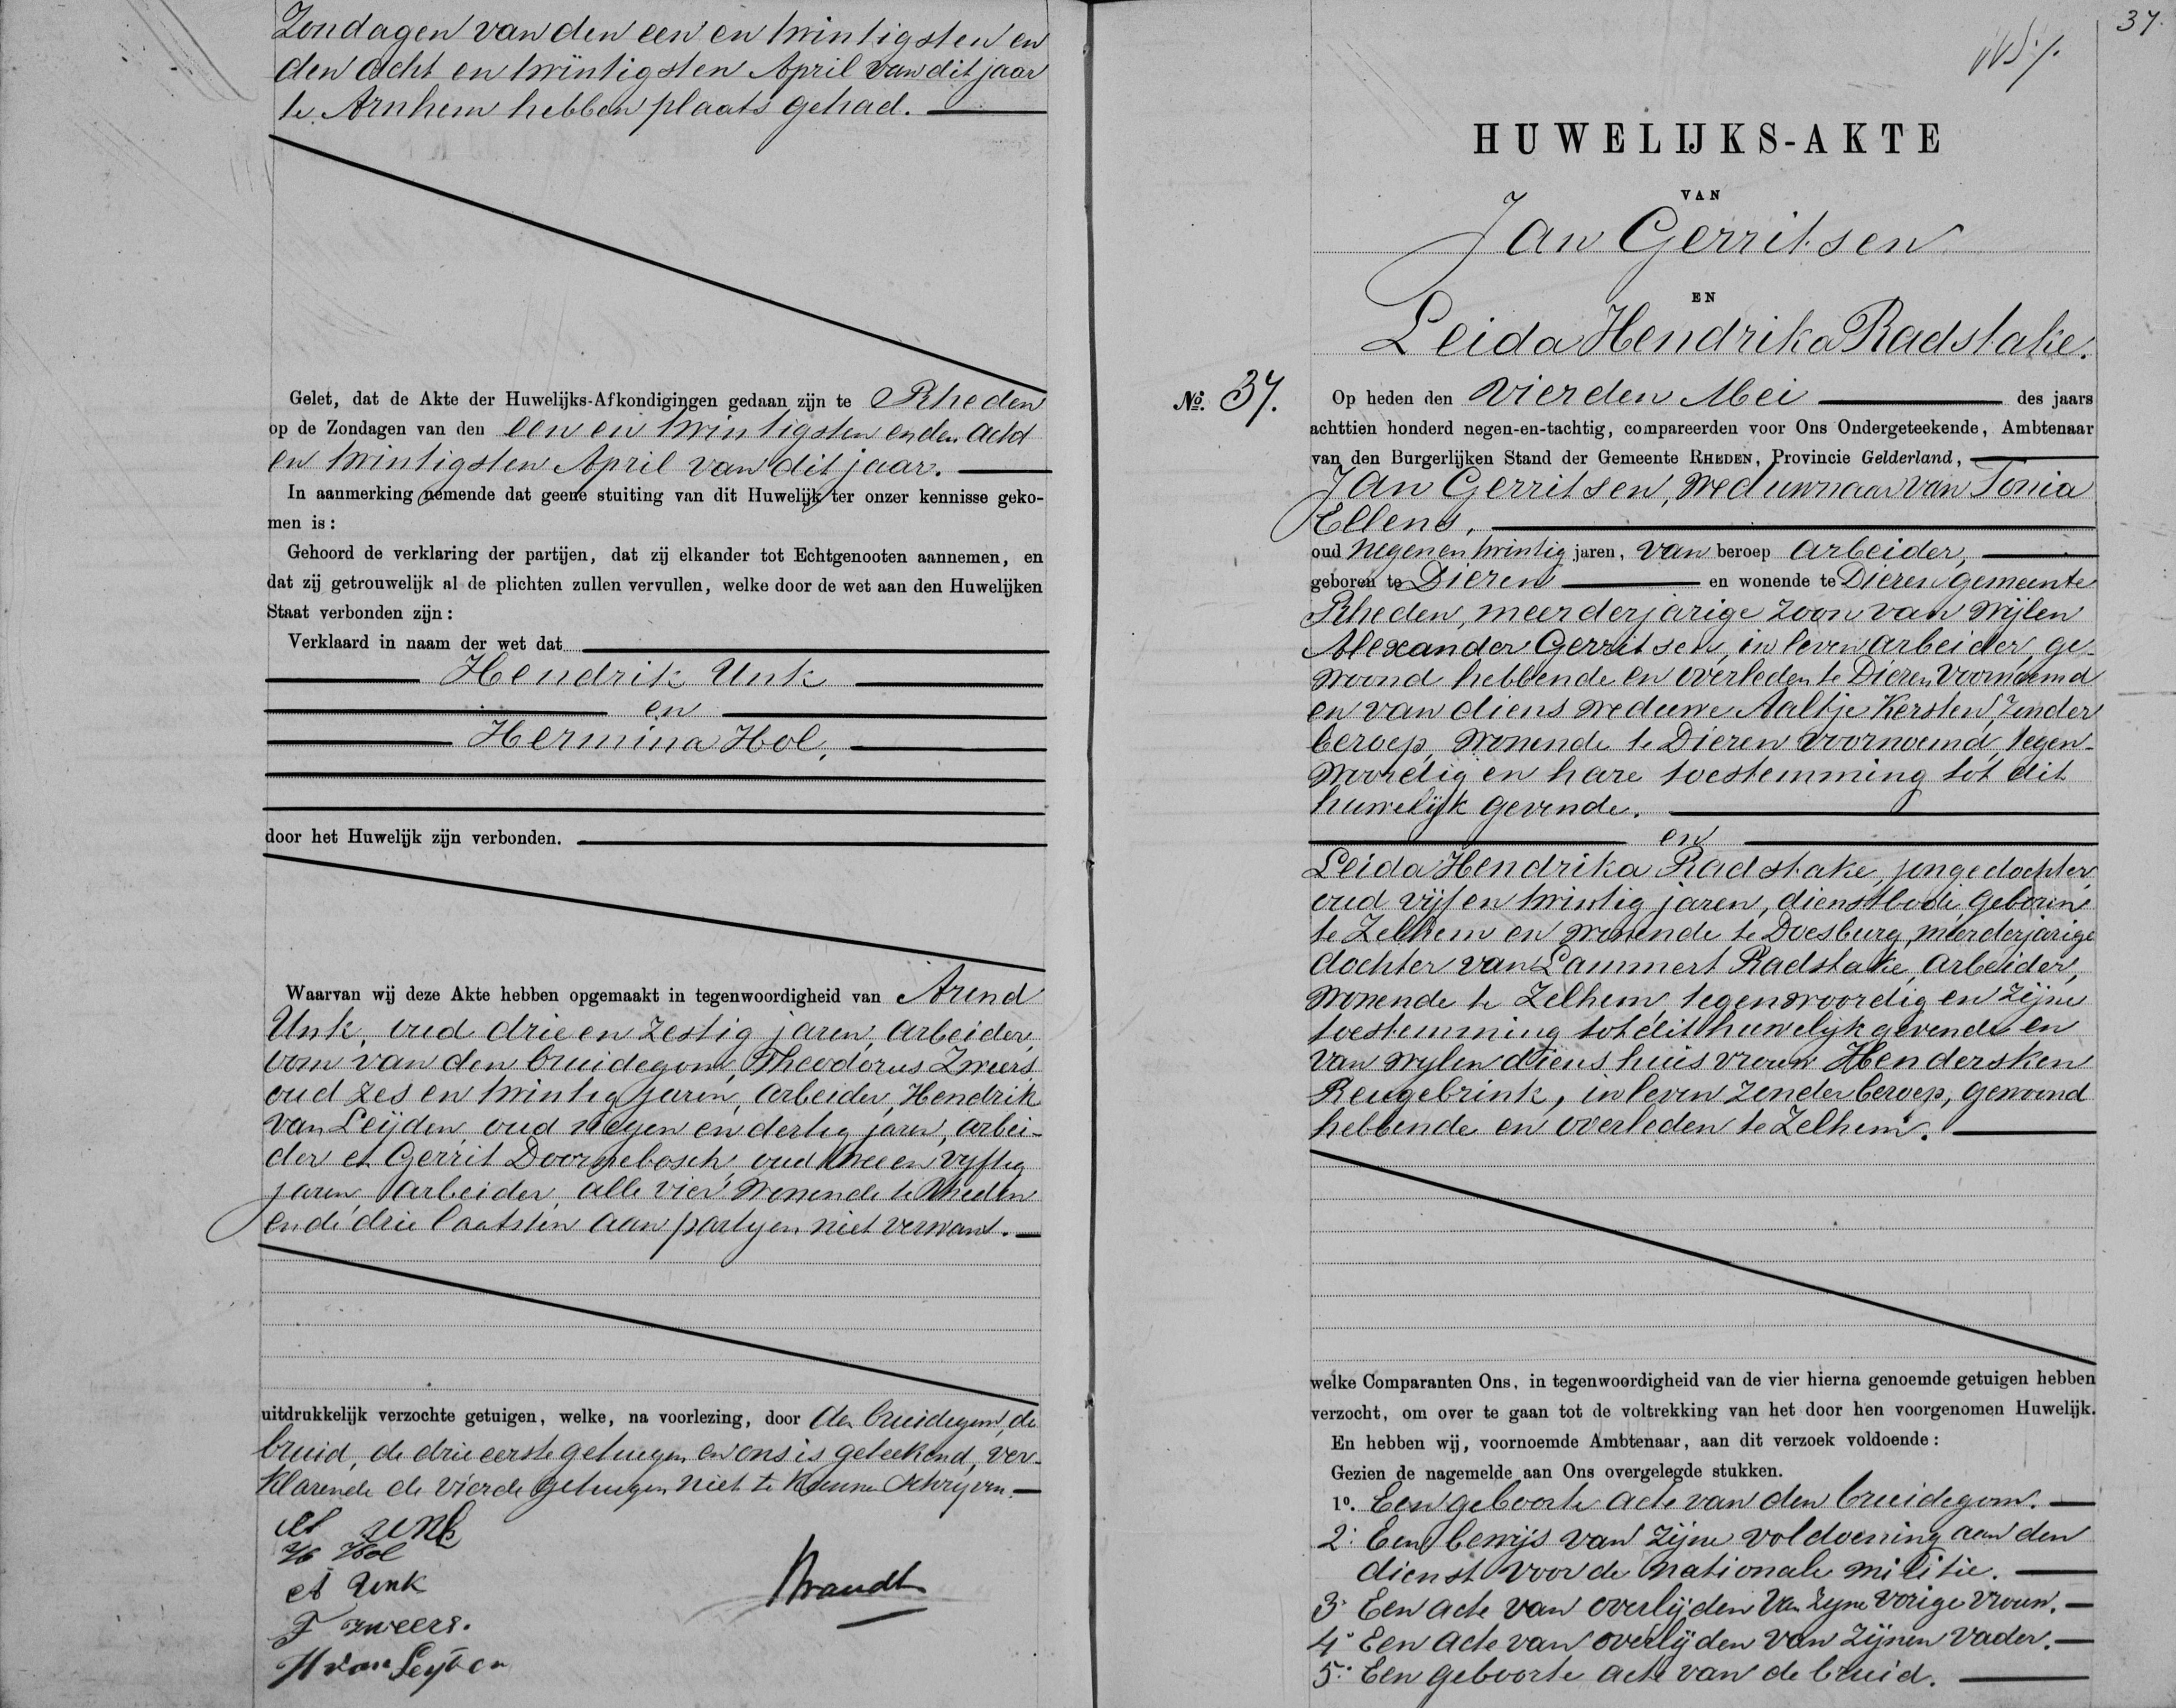 Zondagen van den een en twintigsten en
den acht en twintigsten April van dit jaar
te Arnhem hebben plaats gehad.
Gelet, dat de Akte der Huwelijks-Afkondigingen gedaan zijn te Rheden
op de Zondagen van den een en twintigsten en den acht
en twintigsten April van dit jaar.
In aanmerking nemende dat geene stuiting van dit Huwelijk ter onzer kennisse geko-
men is:
Gehoord de verklaring der partijen, dat zij elkander tot Echtgenooten aannemen, en
dat zij getrouwelijk al de plichten zullen vervullen, welke door de wet aan den Huwelijken
Staat verbonden zijn:
Verklaard in naam der wet dat
Hendrik Unk
en
Hermina Hol,
door het Huwelijk zijn verbonden.
Waarvan wij deze Akte hebben opgemaakt in tegenwoordigheid van Arend
Unk, oud drie en zestig jaren, arbeider,
oom van den bruidegom, Theodorus Zweers
oud zes en twintig jaren, arbeider, Hendrik
van Leijden, oud negen en dertig jaren, arbei-
der en Gerrit Doornebosch, oud twee en vyftig
jaren arbeider, alle vier wonende te Rheden
en de drie laatsten aan partyen niet verwant.
uitdrukkelijk verzochte getuigen, welke, na voorlezing, door den bruidegom, de
bruid, de drie eerste getuigen en ons is geteekend, ver-
klarende de vierde getuigen niet te kunnen schryven.
H Unk
H Hol
A Unk
T Zweers.
H van Leyden
Brandt
37.
HUWELIJKS-AKTE
VAN
Jan Gerritsen
EN
Leida Hendrika Radstake.
No. 37.
Op heden den vierden Mei des jaars
achttien honderd negen-en-tachtig, compareerden voor Ons Ondergeteekende, Ambtenaar
van den Burgerlijken Stand der Gemeente RHEDEN, Provincie Gelderland,
Jan Gerritsen, weduwnaar van Tonia
Ellens,
oud negen en twintig jaren, van beroep arbeider,
geboren te Dieren en wonende te Dieren gemeente
Rheden, meerderjarige zoon van wijlen
Alexander Gerritsen, in leven arbeider, ge-
woond hebbende en overleden te Dieren voornoemd
en van diens weduwe Aaltje Kersten, zonder
beroep, wonende te Dieren voornoemd, tegen-
woordig en hare toestemming tot dit
huwelijk gevende.
en
Leida Hendrika Radstake, jongedochter,
oud vijf en twintig jaren, dienstbode, geboren
te Zelhem en wonende te Doesburg, meerderjarige
dochter van Lammert Radstake, arbeider,
wonende te Zelhem, tegenwoordig en zijne
toestemming tot dit huwelijk gevende en
van wylen diens huisvrouw Hendersken
Reugebrink, in leven zonder beroep, gewoond
hebbende en overleden te Zelhem.
welke Comparanten Ons, in tegenwoordigheid van de vier hierna genoemde getuigen hebben
verzocht, om over te gaan tot de voltrekking van het door hen voorgenomen Huwelijk.
En hebben wij, voornoemde Ambtenaar, aan dit verzoek voldoende:
Gezien de nagemelde aan Ons overgelegde stukken.
1o. Een geboorte acte van den bruidegom.
2: Een bewijs van zijne voldoening aan den
dienst voor de nationale militie.
3: Een acte van overlijden van zyne vorige vrouw.
4: Een acte van overlijden van zijnen vader.
5: Een geboorte acte van de bruid.